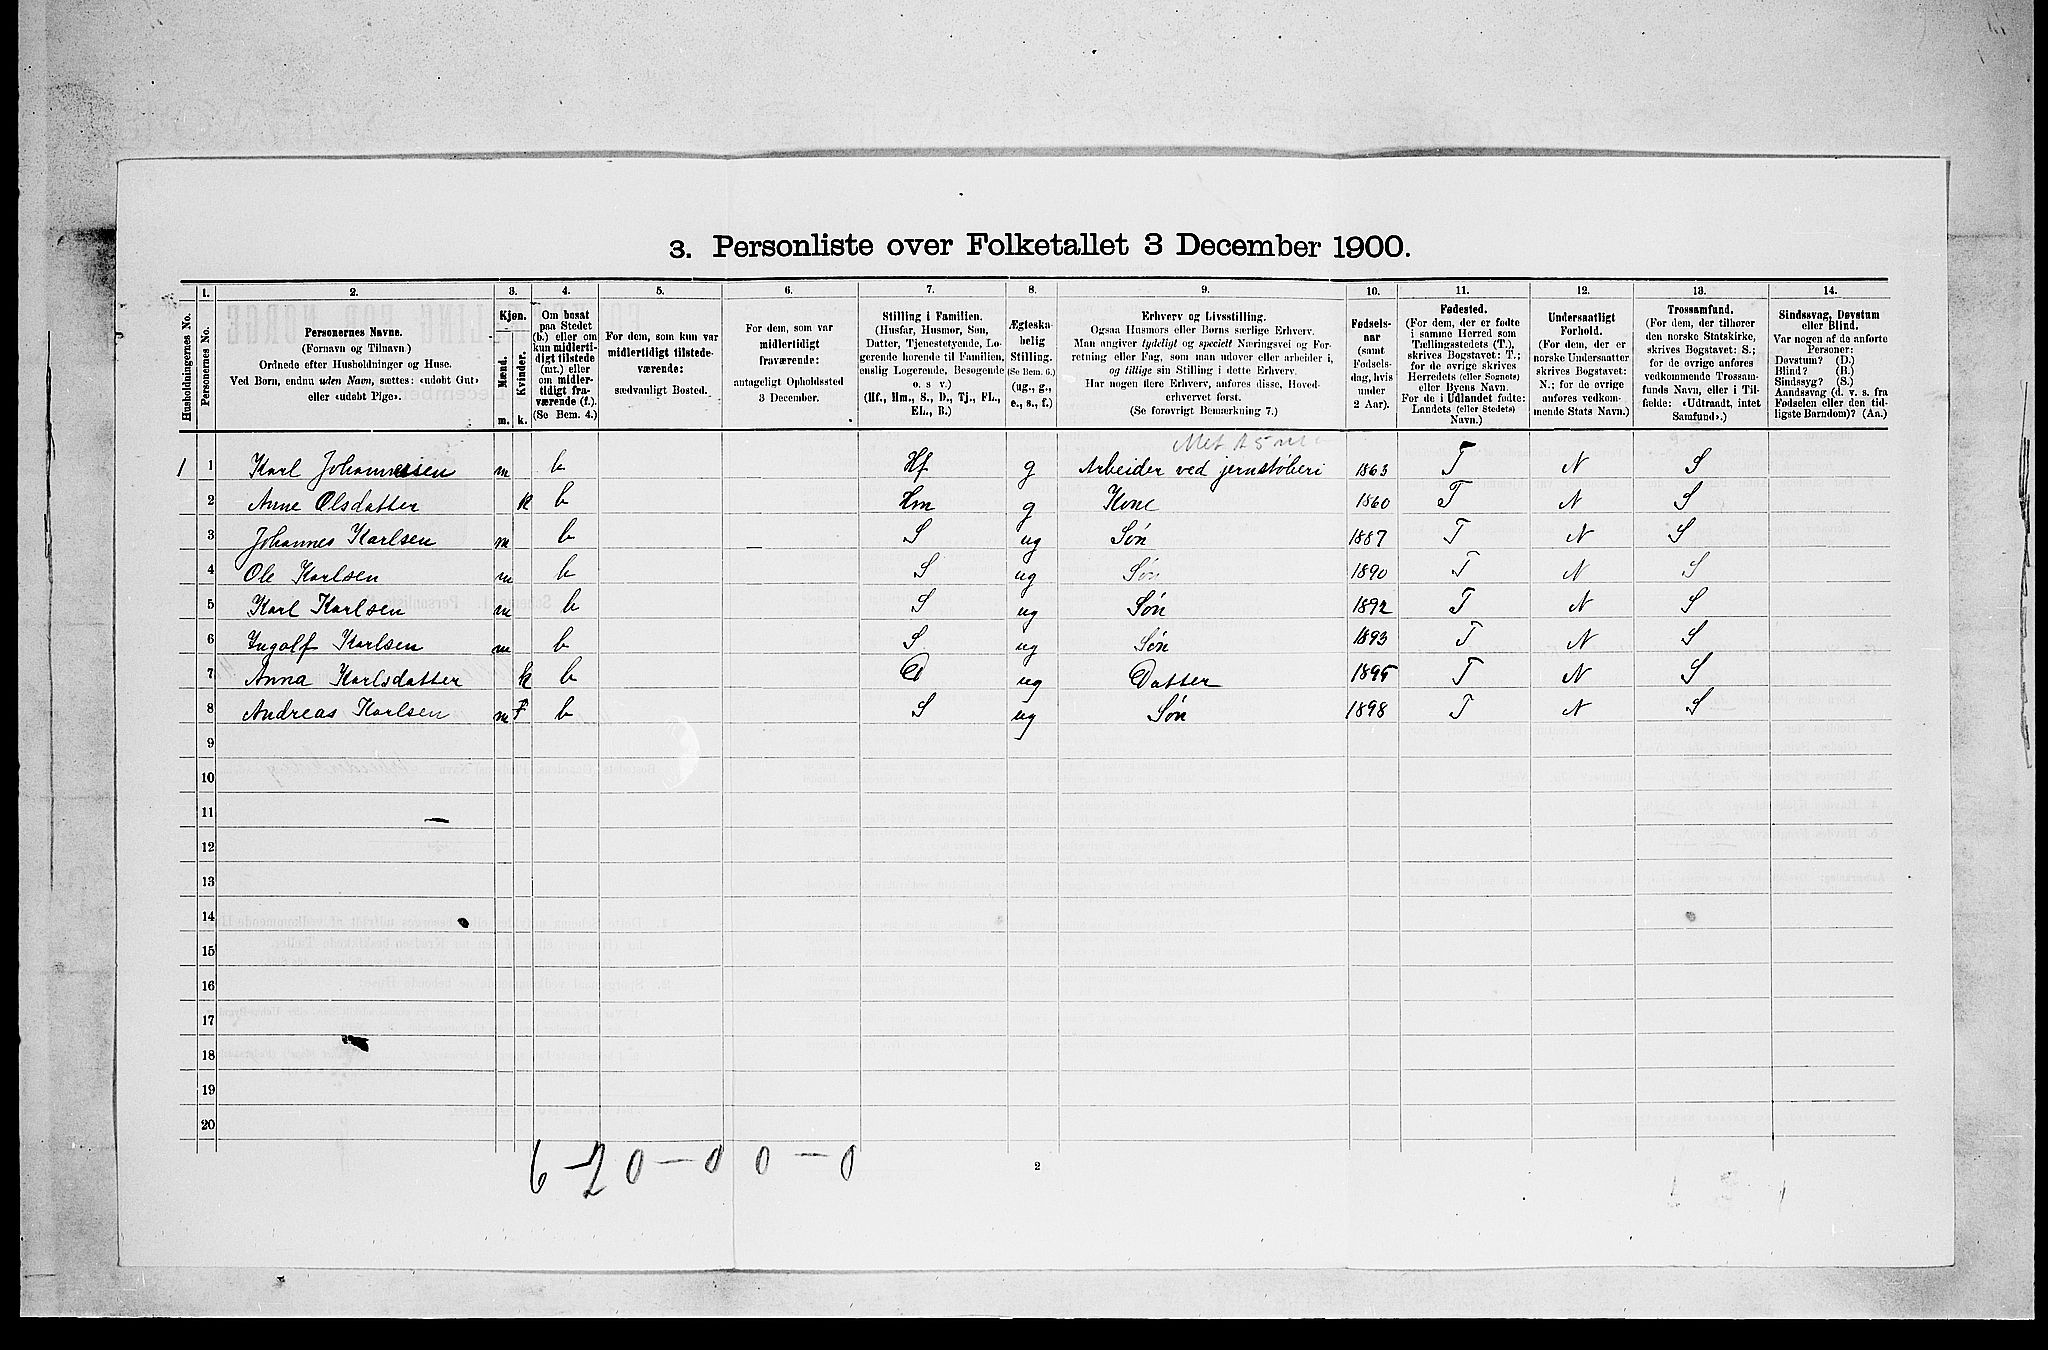 3. Personliste over Folketallet 3 December 1900.
Husholdningernes No.
1.
Personernes No.
2.
Personernes Navne.
(Fornavn og Tilnavn.)
Ordnede efter Husholdninger og Huse.
Ved Børn, endnu uden Navn, sættes: «udøbt Gut»
eller «udøbt Pige».
3.
Kjøn.
Mænd.
m.
Kvinder.
k.
4.
Om bosat
paa Stedet
(b.) eller om
kun midlerti-
digt tilstede
(mt.) eller
om midler-
tidigt fra-
værende (f.).
(Se Bem. 4.)
5.
For dem, som kun var
midlertidigt tilstede-
værende:
sædvanligt Bosted.
6.
For dem, som var
midlertidigt
fraværende:
antageligt Opholdssted
3 December.
7.
Stilling i Familien.
(Husfar, Husmor, Søn,
Datter, Tjenestetyende, Lo-
gerende hørende til Familien,
enslig Logerende, Besøgende
o. s v.)
(Hf., Hm., S., D., Tj., FL.,
EL., B.)
8.
Ægteska-
belig
Stilling.
(Se Bem. 6.)
(ug., g.,
e., s., f.)
9.
Erhverv og Livsstilling.
Ogsaa Husmors eller Børns særlige Erhverv.
Man angiver tydeligt og specielt Næringsvei og For-
retning eller Fag, som man udøver eller arbeider i,
og tillige sin Stilling i dette Erhverv.
Har nogen flere Erhverv, anføres disse, Hoved-
erhvervet først.
(Se forøvrigt Bemærkning 7.)
10.
Fødsels-
aar
(samt
Fødsels-
dag, hvis
under
2 Aar).
11.
Fødested.
(For dem, der er fødte
i samme Herred som
Tællingsstedets (T.),
skrives Bogstavet: T.;
for de øvrige skrives
Herredets (eller Sognets)
eller Byens Navn.
For de i Udlandet fødte:
Landets (eller Stedets)
Navn.)
12.
Undersaatligt
Forhold.
(For dem, der er
norske Undersaatter
skrives Bogstavet:
N.; for de øvrige
anføres vedkom-
mende Stats Navn.)
13.
Trossamfund.
(For dem, der tilhører
den norske Statskirke,
skrives Bogstavet: S.;
for de øvrige anføres
vedkommende Trossam-
funds Navn, eller i Til-
fælde: «Udtraadt, intet
Samfund».)
14.
Sindssvag, Døvstum
eller Blind.
Var nogen af de anførte
Personer:
Døvstum? (D.)
Blind? (B.)
Sindssyg? (S.)
Aandssvag (d. v. s. fra
Fødselen eller den tid-
ligste Barndom)? (Aa.)
1 1 Karl Johannessen m b Hf g Arbeider ved jernstøberi 1863 T N S
2 Anne Olsdatter k b Hm g Kone 1860 T N S
3 Johannes Karlsen m b S ug Søn 1887 T N S
4 Ole Karlsen m b S ug Søn 1890 T N S
5 Karl Karlsen m b S ug Søn 1892 T N S
6 Ingolf Karlsen m b S ug Søn 1893 T N S
7 Anna Karlsdatter k b D ug Datter 1895 T N S
8 Andreas Karlsen m b S ug Søn 1898 T N S
9
10
11
12
13
14
15
16
17
18
19
20
2